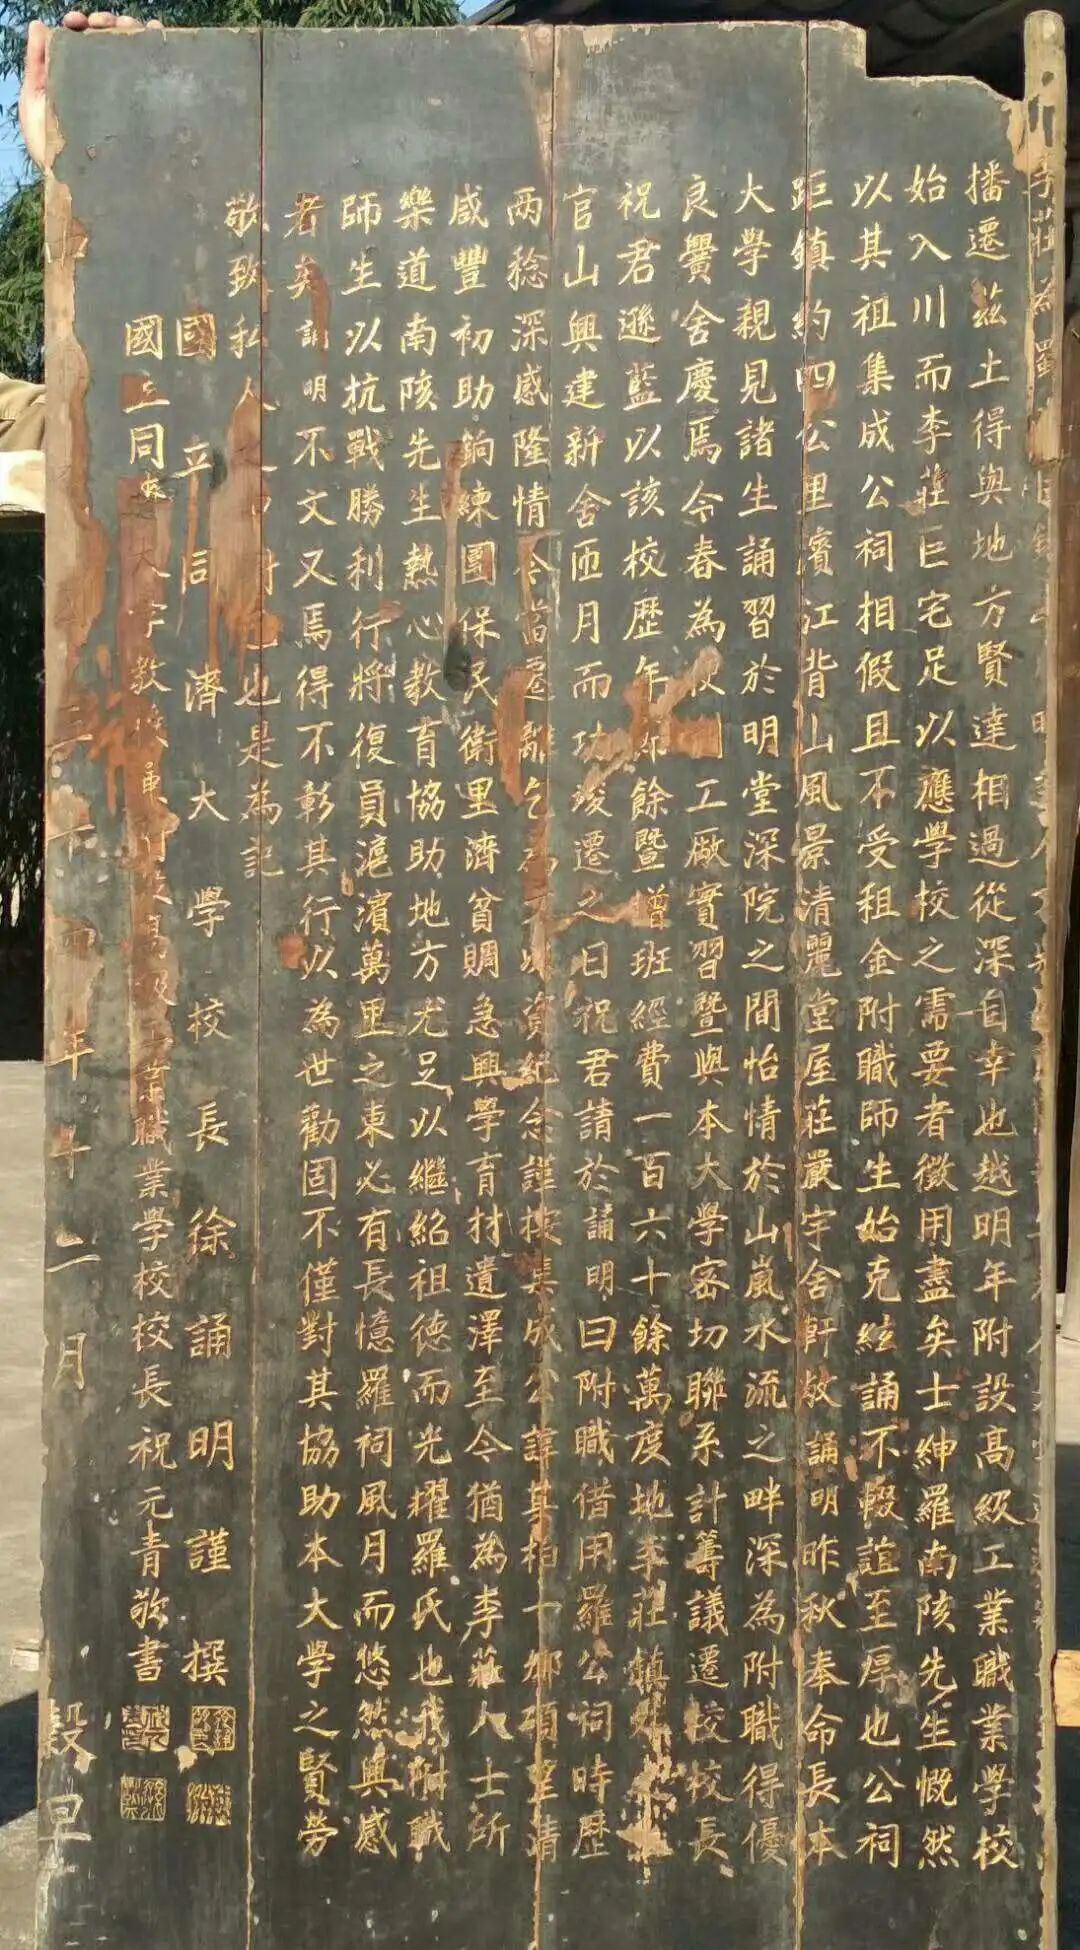 李莊為蜀
播遷茲土得與地方賢達相過從深自幸也越明年附設高級工業職業學校
始入川而李莊巨宅足以應學校之需要者徵用盡矣士紳羅南陔先生慨然
以其祖集成公祠相假且不受租金附職師生始克絃誦不輟誼至厚也公祠
距鎮約四公里濱江背山風景清麗堂屋莊嚴宇舍軒敞誦明昨秋奉命長本
大學親見諸生誦習於明堂深院之間怡情於山嵐水流之畔深為附職得優
良黌舍慶焉今春為便 工廠實習暨與本大學密切聯系計籌議遷校校長
祝君遜藍以該校歷年 餘暨增班經費一百六十餘萬度地李莊鎮
官山興建新舍匝月而功竣遷之日祝君請於誦明曰附職借用羅公祠時歷
兩稔深感隆情今當遷離乞為 以資紀念謹按集成公諱其柏一鄉碩望清
咸豐初助餉練團保民衛里濟貧賙急興學育材遺澤至今猶為李莊人士所
樂道南陔先生熱心教育協助地方尤足以繼紹祖德而光耀羅氏也我附職
師生以抗戰勝利行將復員滬濱萬里之東必有長憶羅祠風月而悠然興感
者矣誦明不文又焉得不彰其行以為世勸固不僅對其協助本大學之賢勞
敬致私人 也是為記
國立同濟大學校長徐誦明謹撰
國立同濟大學 高級工業職業學校校長祝元青敬書
中 三十四年十二月 穀旦